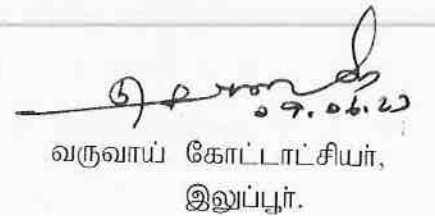 09.06.23
வருவாய் கோட்டாட்சியர்,
இலுப்பூர்.